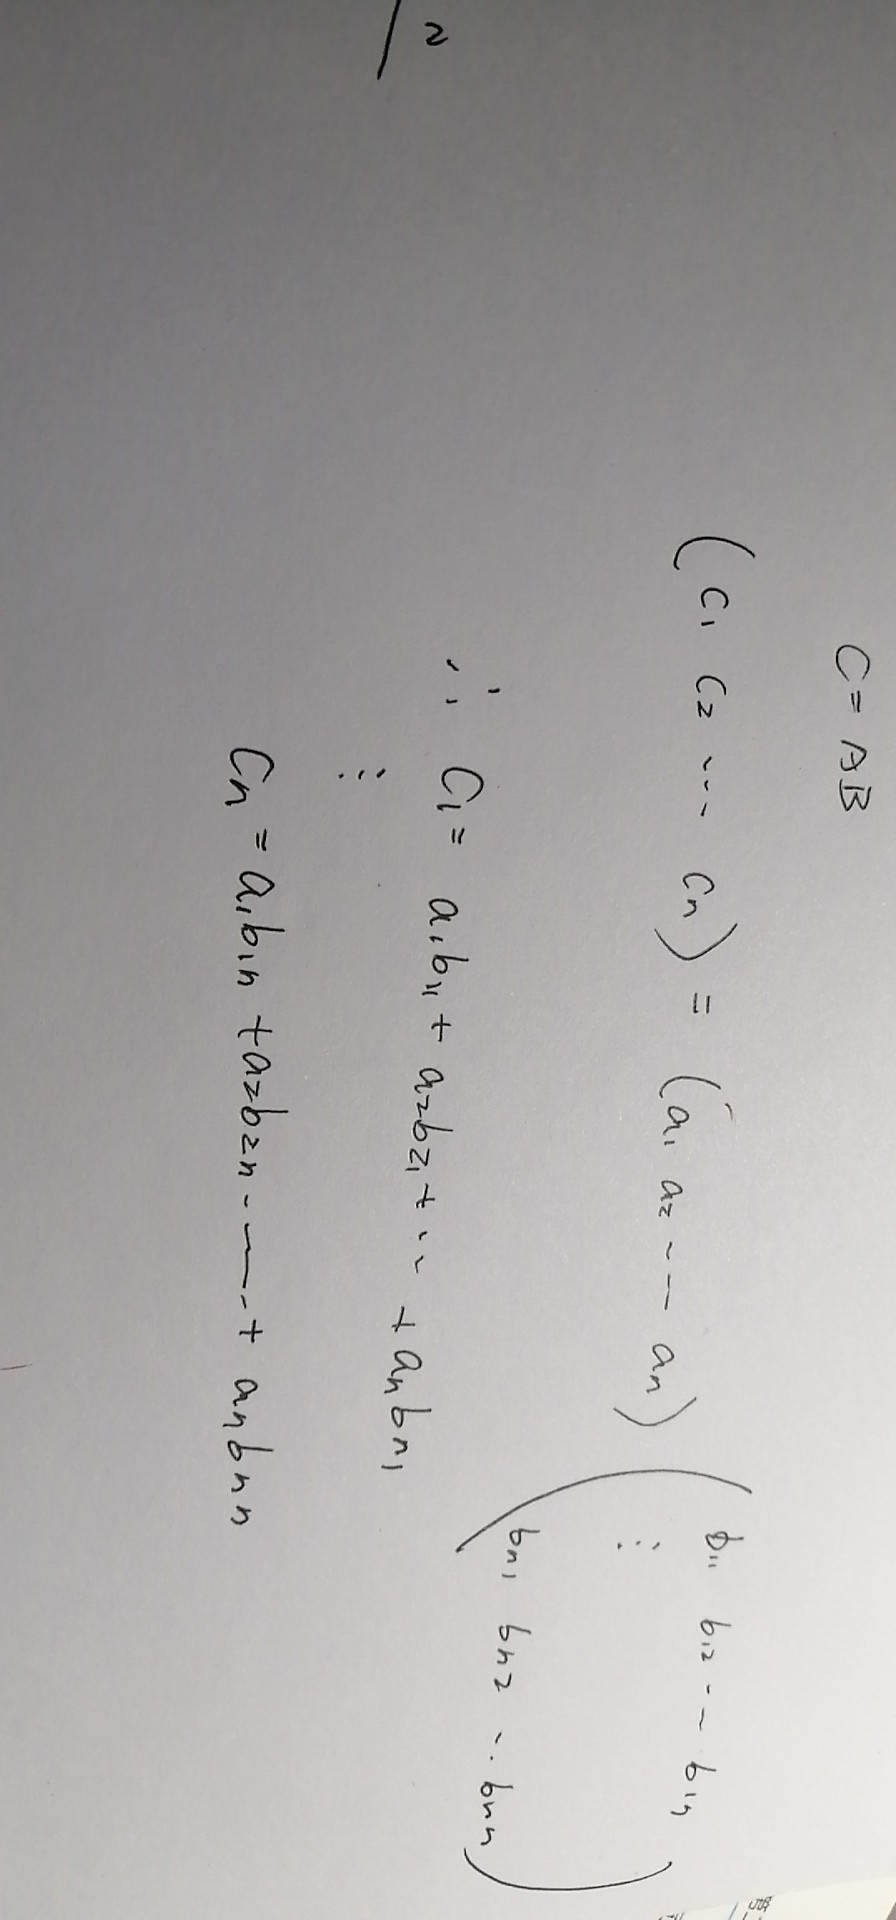 C = AB
(c₁ c₂ ... cₙ) = (a₁ a₂ ... aₙ) (b₁₁ b₁₂ ... b₁ₙ
⋮
bₙ₁ bₙ₂ ... bₙₙ)
∴ C₁ = a₁b₁₁ + a₂b₂₁ + ... + aₙbₙ₁
⋮
Cₙ = a₁b₁ₙ + a₂b₂ₙ ... + aₙbₙₙ
2